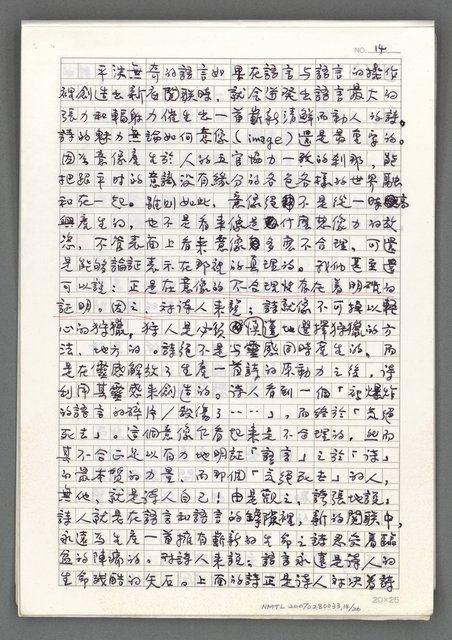 NO. 14
平淡無奇的語言如果在語言與語言的操作
裡創造出新的關聯時，就會迸發出語言最大的
張力和輻射力催生出一首嶄新清鮮而動人的詩。
詩的魅力無論如何意像（image）還是最重要的。
因為意像產生於人的五官協力一致的剎那，能
把跟平時的意識沒有緣分的各色各樣的世界融
和在一起。雖則如此，意像絕不是從一時高
興產生的，也不是看來像是什麼想像力的放
恣，不管表面上看來意像多麼不合理，可還
是能夠論証表示在那裡的真理的。我們甚至還
可以說：正是在意像的不合理性存在著明確的
証明。因之，對詩人來說；詩就像不可掉以輕
心的狩獵，狩人是必須慎謹地選擇狩獵的方
法、地方的。詩絕不是與靈感同時產生的，而
是在靈感解放了生產一首詩的原動力之後，詩
利用其靈感來創造的。詩人看到一個「被爆炸
的語言的碎片人殺傷了……」，而終於「氣絕
死去」。這個意像乍看起來是不合理的，然而
其不合正足以有力地明証「語言」之於「詩」
的最本質的力量。而那個「氣絕死去」的人，
無他，就是詩人自己！由是觀之，誇張地說；
詩人就是在語言和語言的 裡，新的關聯中，
永遠為生產一首擁有嶄新的生命之詩忍受著臨
盆的陣痛的。對詩人來說；語言永遠是詩人的
生命殘酷的矢石。上面的詩正是詩人 詩
20×25
NMTL 20070280033, 14/26